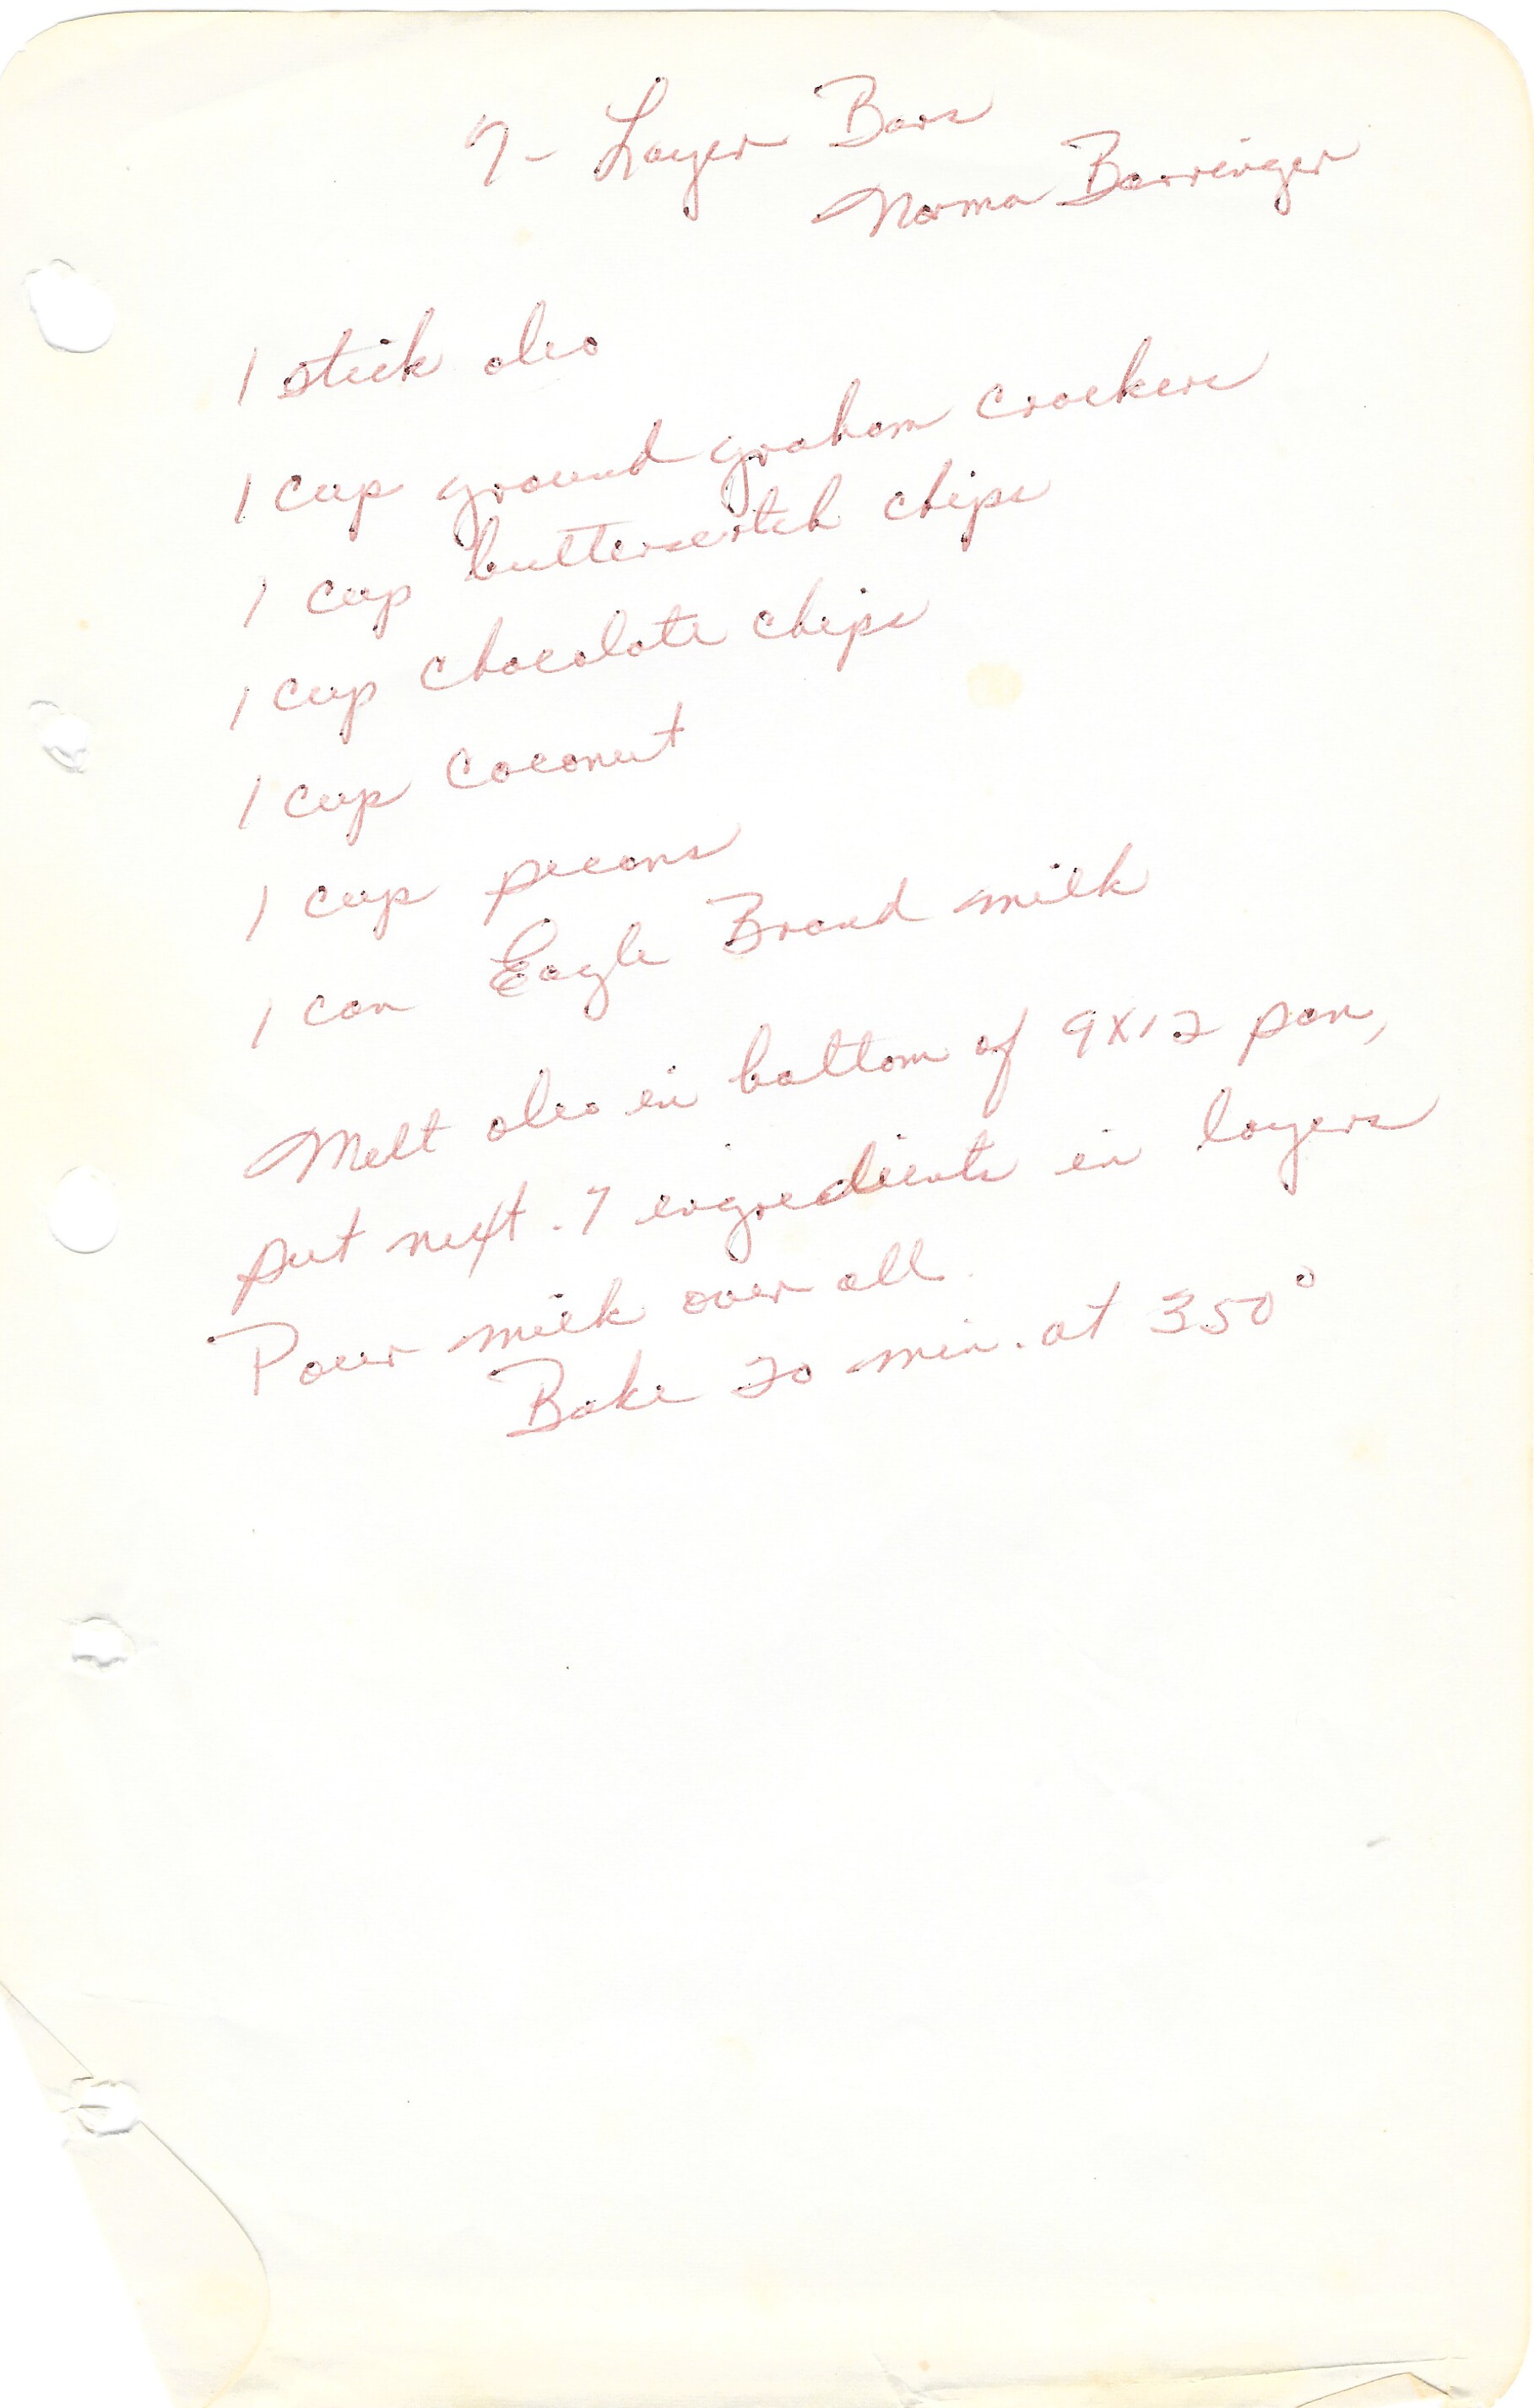 7- Layer Bars
Norma Barringer
1 stick oleo
1 cup ground graham crackers
1 cup butterscotch chips
1 cup chocolate chips
1 cup coconut
1 cup pecans
1 can Eagle Brand milk
Melt oleo in bottom of 9x12 pan,
put next . 7 ingredients in layers
Pour milk over all.
Bake 20 min. at 350°